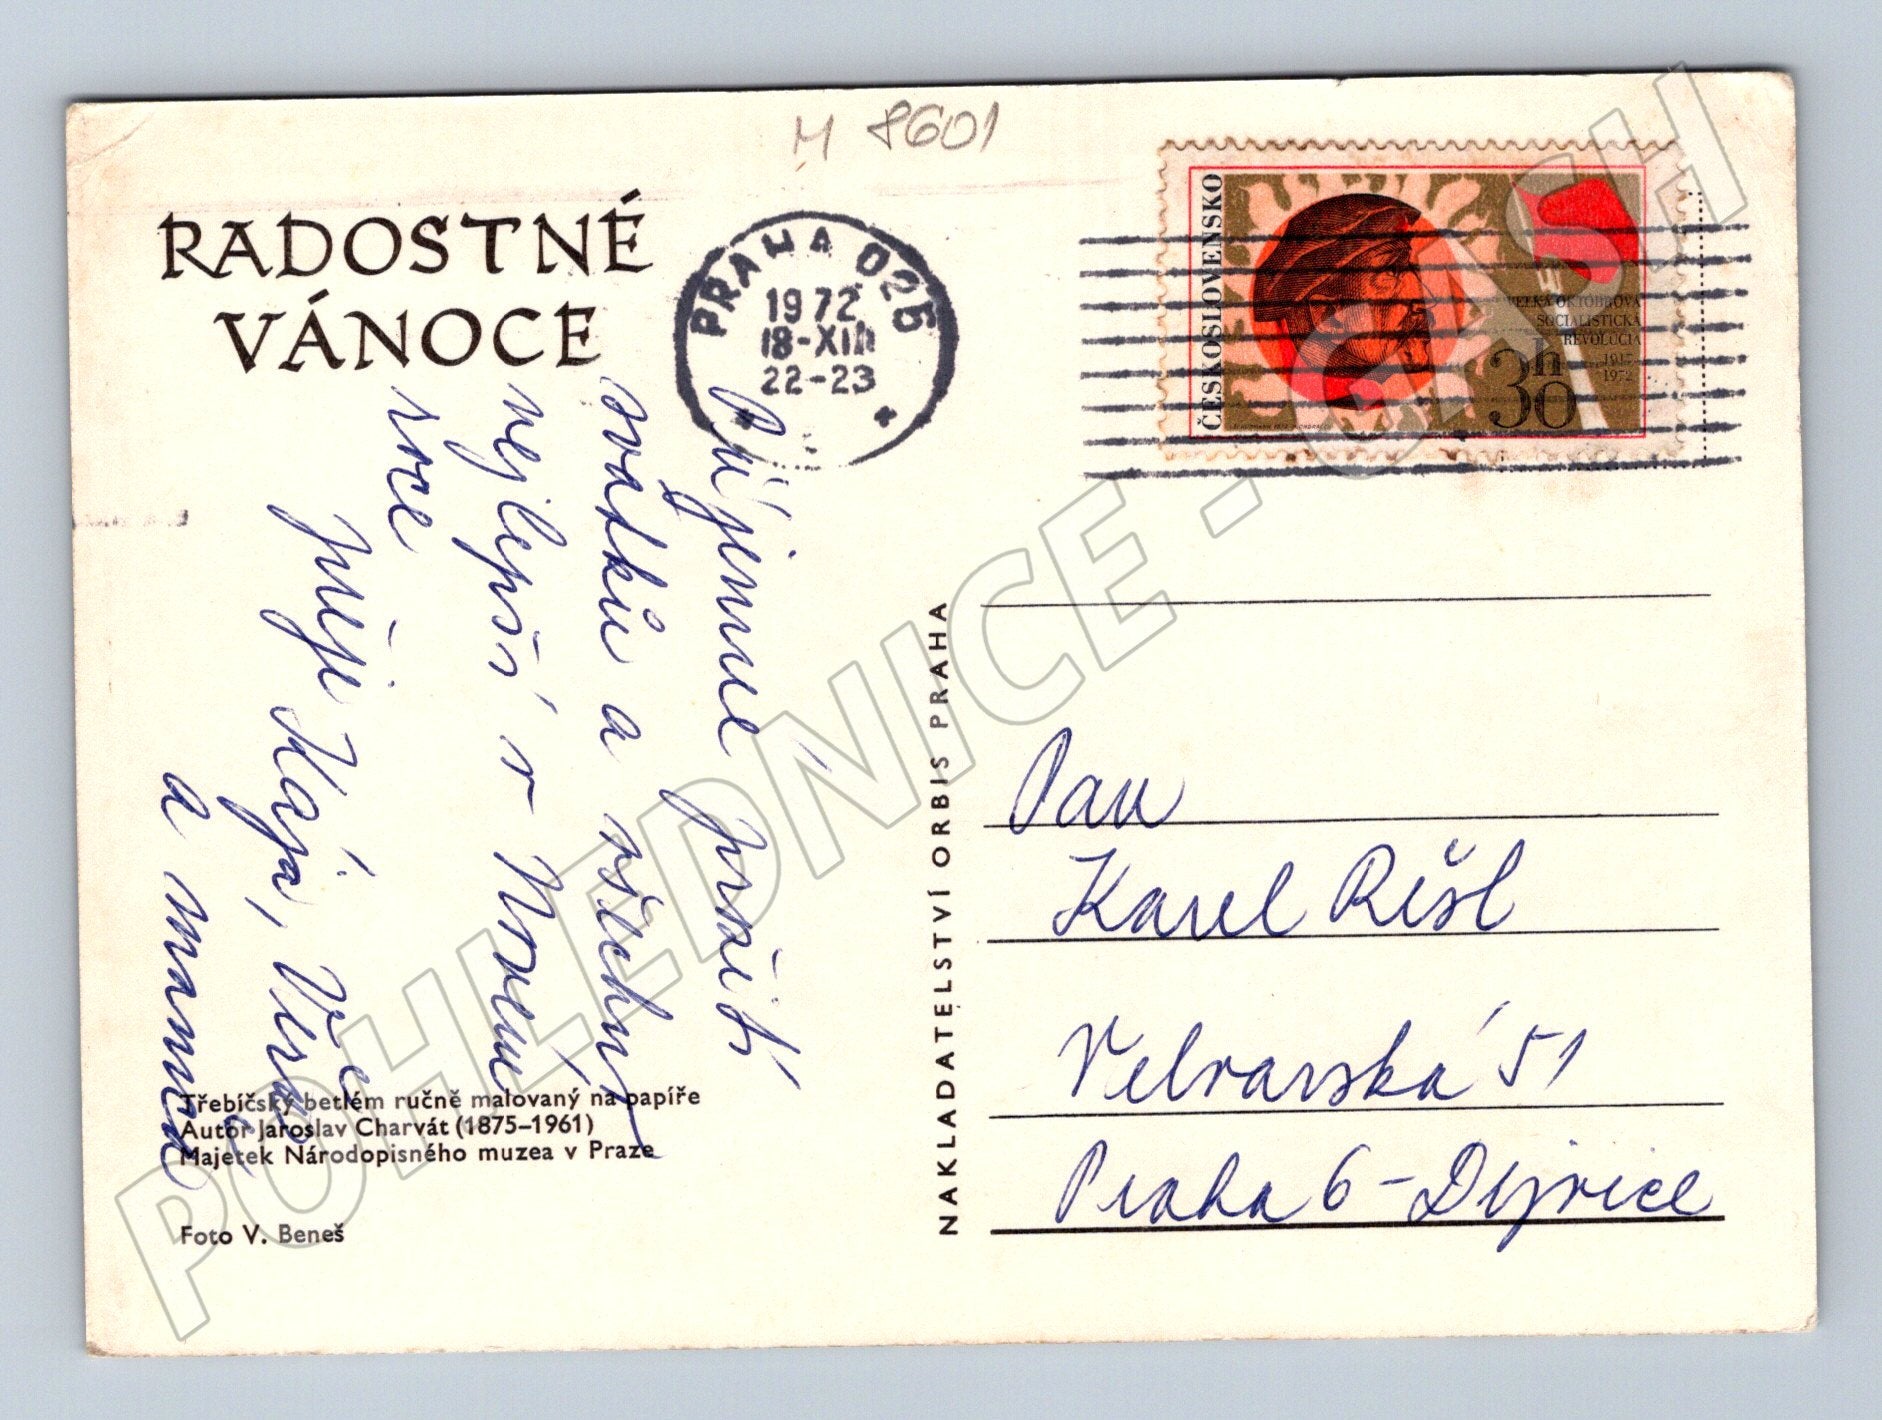 M 8601
RADOSTNÉ
VÁNOCE
PRAHA 025
1972
18-XII
22-23
ČESKOSLOVENSKO
VELKÁ ŘÍJNOVÁ
SOCIALISTICKÁ
REVOLÚCIA
1917
1972
30h
Příjemné prožití
svátků a všechno
nejlepší v Novém
roce
přeje Kája, Věrka
a mamka
Třebíčský betlém ručně malovaný na papíře
Autor Jaroslav Charvát (1875–1961)
Majetek Národopisného muzea v Praze
Foto V. Beneš
NAKLADATELSTVÍ ORBIS PRAHA
Pan
Karel Rešl
Velvarská 51
Praha 6 - Dejvice
POHLEDNICE - CASH